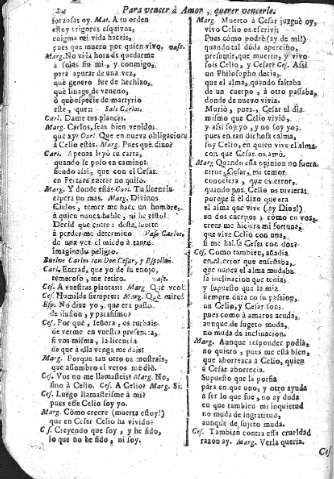 24 Para vencer à Amor, querer vencerle.
forzosas oy. Mat. A tu orden
estoy
enigma es mi vida hazeis,
pues que muero por quien vivo, vase.
Marg. No via hora de quedarme
a solas sin mi, y conmigo,
para apurar de una vez,
què genero fue de hechizo,
què linage de veneno,
ò què especie de martyrio
este, que: Sale Carlos.
Carl. Dame tus plantas.
Marg. Carlos, seais bien venido.
què ay? Carl. Que en nueva obligacion
à Celio estás. Marg. Pues què dixo?
Carl. Apenas leyò tu carta,
quando se puso en camino;
siendo assi, que con el Cesar
en Ferrara entrar no quiso.
Marg. Y donde està? Carl. Tu licencia
espera no mas. Marg. Divinos
Cielos,
à quien
Decid
à perderme
de una vez el miedo à tanto
imaginado peligro.
Buelve Carlos con Don Cesar, y Espolin.
Carl. Entrad, que yo de su enojo,
temeroso, me retiro. vase.
Ces. A vuestras plantas: Marg. Què veo!
Ces. Humilde siempre: Marg. Què miro!
Esp. No dixe yo, que era passo
de ilusion, y parasismo?
Ces. Por què, señora, os turbais
de verme en vuestra presencia,
si vos misma, la licencia
de que à ella venga me dais?
Marg. Porque tan otro os mostrais,
que assombro el veros me diò.
Ces. Vos no me llamasteis? Marg. No,
sino à Celio. Ces. A Celio? Marg. Si.
Ces. Luego llamasteisme à mi?
pues esse Celio soy yo.
Marg. Còmo creeré (muerta estoy!)
que en Cesar Celio ha vivido?
Ces. Creyendo que soy, y he sido,
lo que no he sido, ni soy.
Marg. Muerto à Cesar juzguè oy,
vivo Celio os escrivì:
Pues còmo podrè (ay de mi!)
quando tal duda apercibo,
persuadir, que muerto, y vivo
sois Celio, y Cesar? Ces. Assi
un Philosopho decia,
que el alma, quando faltaba
de un cuerpo, à otro passaba,
donde de nuevo vivia.
Muriò, pues, Cesar el dia
mismo que Celio viviò,
y assi soy yo, y no soy yo;
pues en tan dichosa calma,
soy Celio, en quien vive el alma
con que Cesar os amò.
Marg. Quando essa opinion no fuera
error, Cesar, su temor
conociera, que es error,
quando por Celio os tuviera;
porque si él dize que era
el alma que vive (ay Dios!)
en dos cuerpos, còmo en vos,
creerè me hiciera mi fortuna,
que vive Celio con una,
si me hallè Cesar con dos?
Ces. Como tambien, añadia
en el error que enseñaba,
que nunca el alma mudaba
la inclinacion que tenia;
y supuesto que la mia
siempre dura en su passion,
un Celio, y Cesar son;
pues como à amaros acuda,
aunque de sugeto muda,
no muda de inclinacion.
Marg. Aunque responder podia,
no quiero, pues me està bien,
que aborrezca à Celio, quien
à Cesar aborrecia.
Supuesto que la porfia
passa en que uno, y otro ayuda
à ser lo que fue, no ay duda
en que tambien mi inquietud
no muda de ingratitud,
aunque de sugeto muda.
Ces. Tambien contra essa crueldad
razon ay. Marg. Verla queria.
Ces.